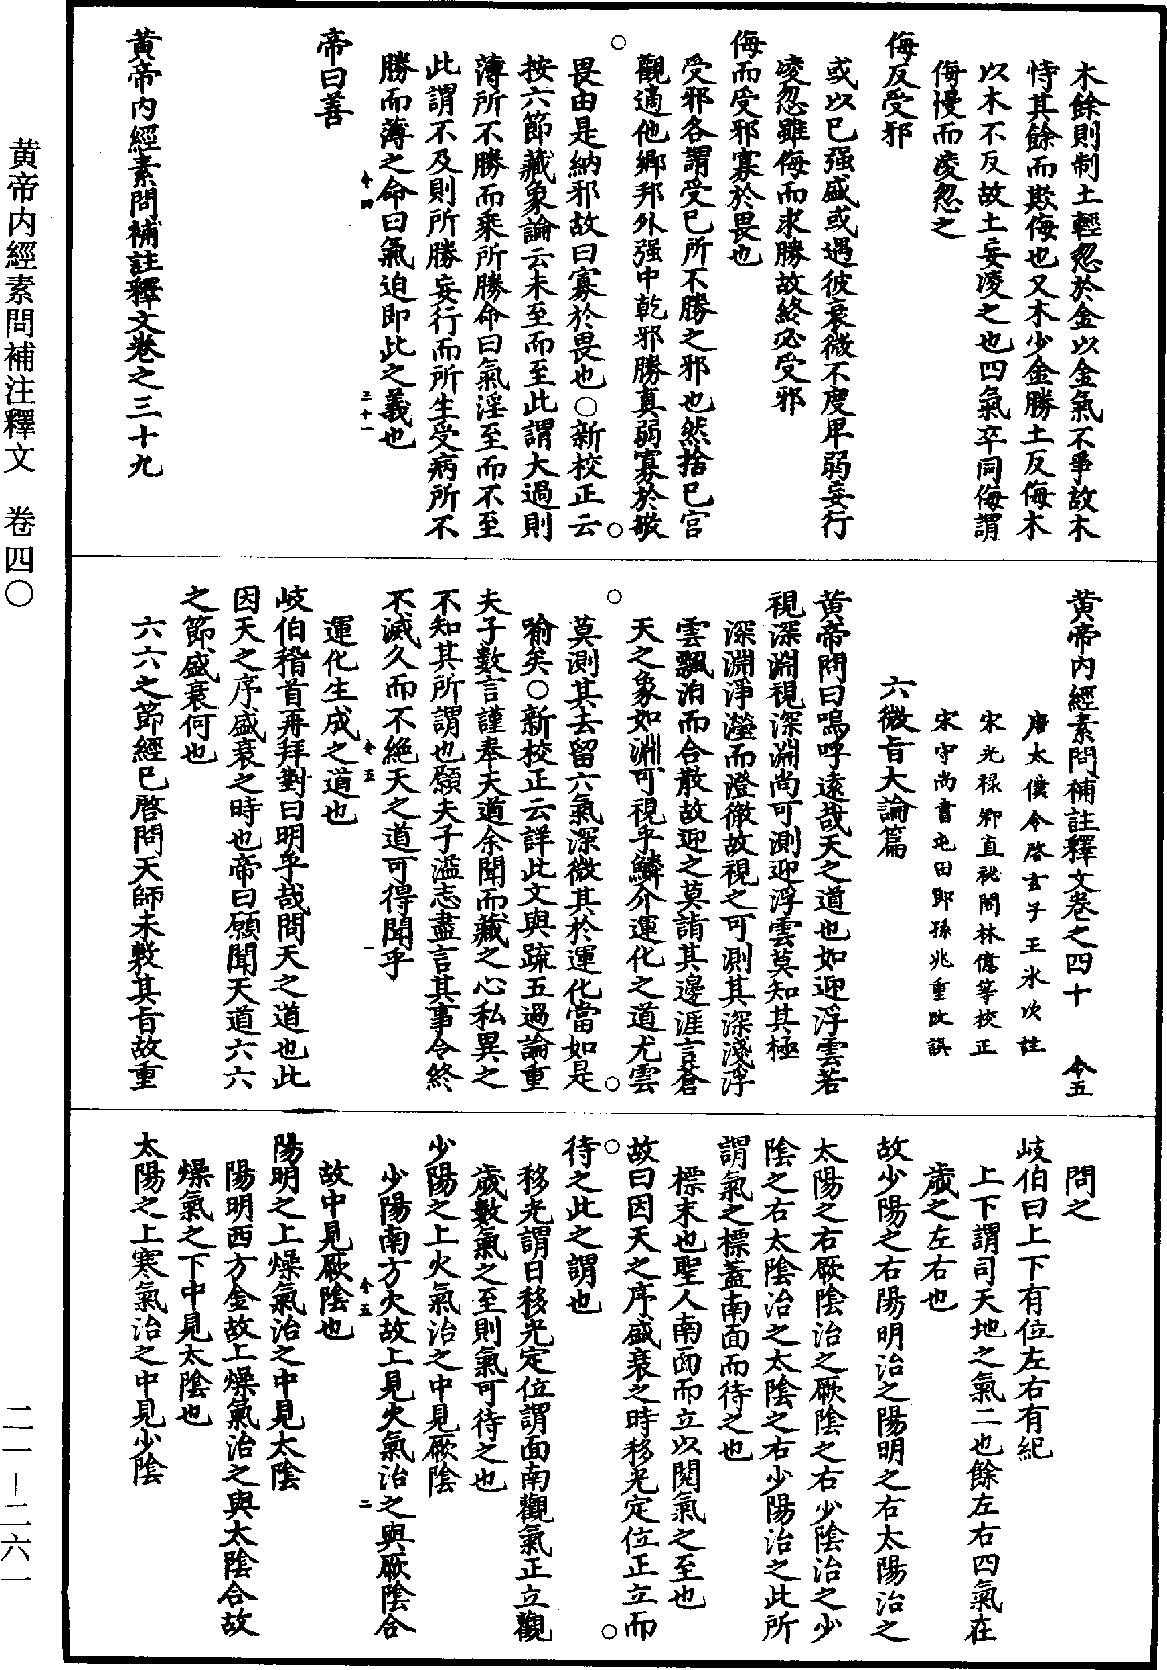 木餘則制土輕忽於金以金氣不爭故木
恃其餘而欺侮也又木少金勝土反侮木
以木不及故土妄凌之也四氣卒同侮謂
侮慢而凌忽之
侮反受邪
或以己强盛或遇彼衰微不度卑弱妄行
凌忽雖侮而求勝故終必受邪
侮而受邪寡於畏也
受邪各謂受己所不勝之邪也然捨己宮
觀適他鄉邦外强中乾邪勝真弱寡於敬
畏由是納邪故曰寡於畏也○新校正云
按六節藏象論云未至而至此謂大過則
薄所不勝而乘所勝命曰氣淫至而不至
此謂不及則所勝妄行而所生受病所不
勝而薄之命曰氣迫即此之義也
令四 三十一
帝曰善
黃帝內經素問補註釋文卷之三十九
黃帝內經素問補註釋文卷之四十 令五
唐太僕令啓玄子王氷次註
宋光禄卿直祕閣林億等校正
宋守尚書屯田郎孫兆重改誤
六微旨大論篇
黃帝問曰嗚呼遠哉天之道也如迎浮雲若
視深淵視深淵尚可測迎浮雲莫知其極
深淵淨瀅而澄徹故視之可測其深淺浮
雲飄泊而合散故迎之莫詣其邊涯言蒼
天之象如淵可視乎鱗介運化之道尤雲
莫測其去留六氣深微其於運化當如是
喻矣○新校正云詳此文與疏五過論重
夫子數言謹奉天道余聞而藏之心私異之
不知其所謂也願夫子溢志盡言其事令終
不滅久而不絶天之道可得聞乎
令五 一
運化生成之道也
岐伯稽首再拜對曰明乎哉問天之道也此
因天之序盛衰之時也帝曰願聞天道六六
之節盛衰何也
六六之節經已啓問天師未敷其旨故重
問之
岐伯曰上下有位左右有紀
上下謂司天地之氣二也餘左右四氣在
歲之左右也
故少陽之右陽明治之陽明之右太陽治之
太陽之右厥陰治之厥陰之右少陰治之少
陰之右太陰治之太陰之右少陽治之此所
謂氣之標蓋南面而待之也
標末也聖人南面而立以閱氣之至也
故曰因天之序盛衰之時移光定位正立而
待之此之謂也
移光謂日移光定位謂面南觀氣正立觀
歲數氣之至則氣可待之也
少陽之上火氣治之中見厥陰
少陽南方火故上見火氣治之與厥陰合
令五 二
故中見厥陰也
陽明之上燥氣治之中見太陰
陽明西方金故上燥氣治之與太陰合故
燥氣之下中見太陰也
太陽之上寒氣治之中見少陰
黃帝內經素問補注釋文 卷四〇
二一－二六一